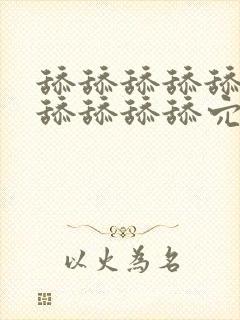 舔舔舔舔舔
舔舔舔舔穴
以火為名